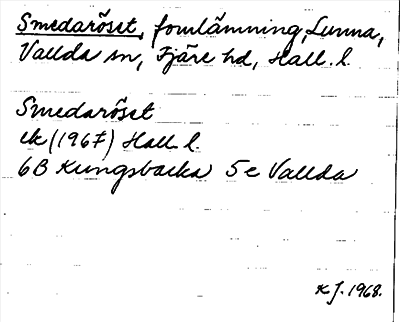 Smedaröset, fornlämning, Lunna,
Vallda sn, Fjäre hd, Hall. l.
Smedaröset
ek (1967) Hall. l.
6B Kungsbacka 5e Vallda
KJ. 1968.